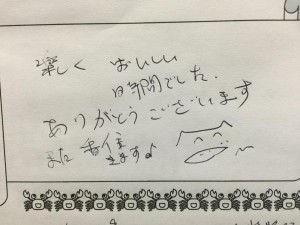 楽しく おいしい
時間でした.
ありがとうございます
また 来ます♪